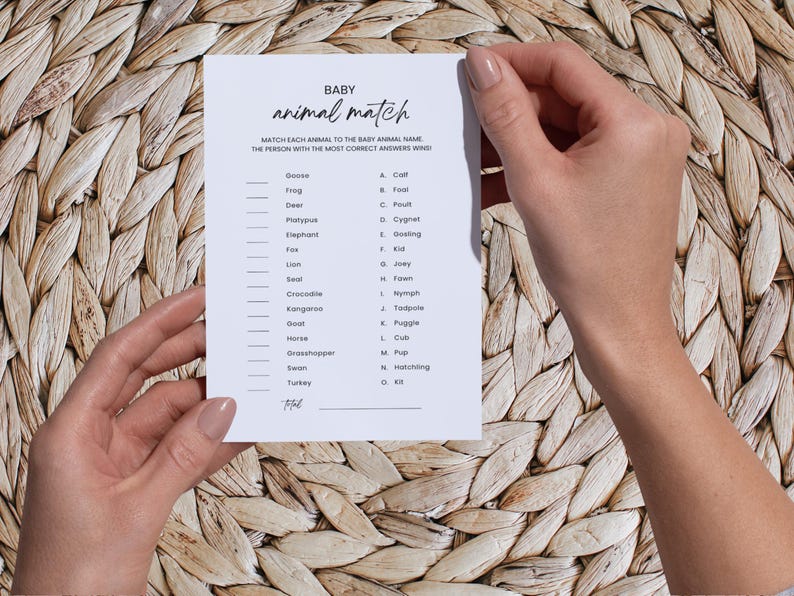 BABY
animal match
MATCH EACH ANIMAL TO THE BABY ANIMAL NAME.
THE PERSON WITH THE MOST CORRECT ANSWERS WINS!
____ Goose A. Calf
____ Frog B. Foal
____ Deer C. Poult
____ Platypus D. Cygnet
____ Elephant E. Gosling
____ Fox F. Kid
____ Lion G. Joey
____ Seal H. Fawn
____ Crocodile I. Nymph
____ Kangaroo J. Tadpole
____ Goat K. Puggle
____ Horse L. Cub
____ Grasshopper M. Pup
____ Swan N. Hatchling
____ Turkey O. Kit
total ____________